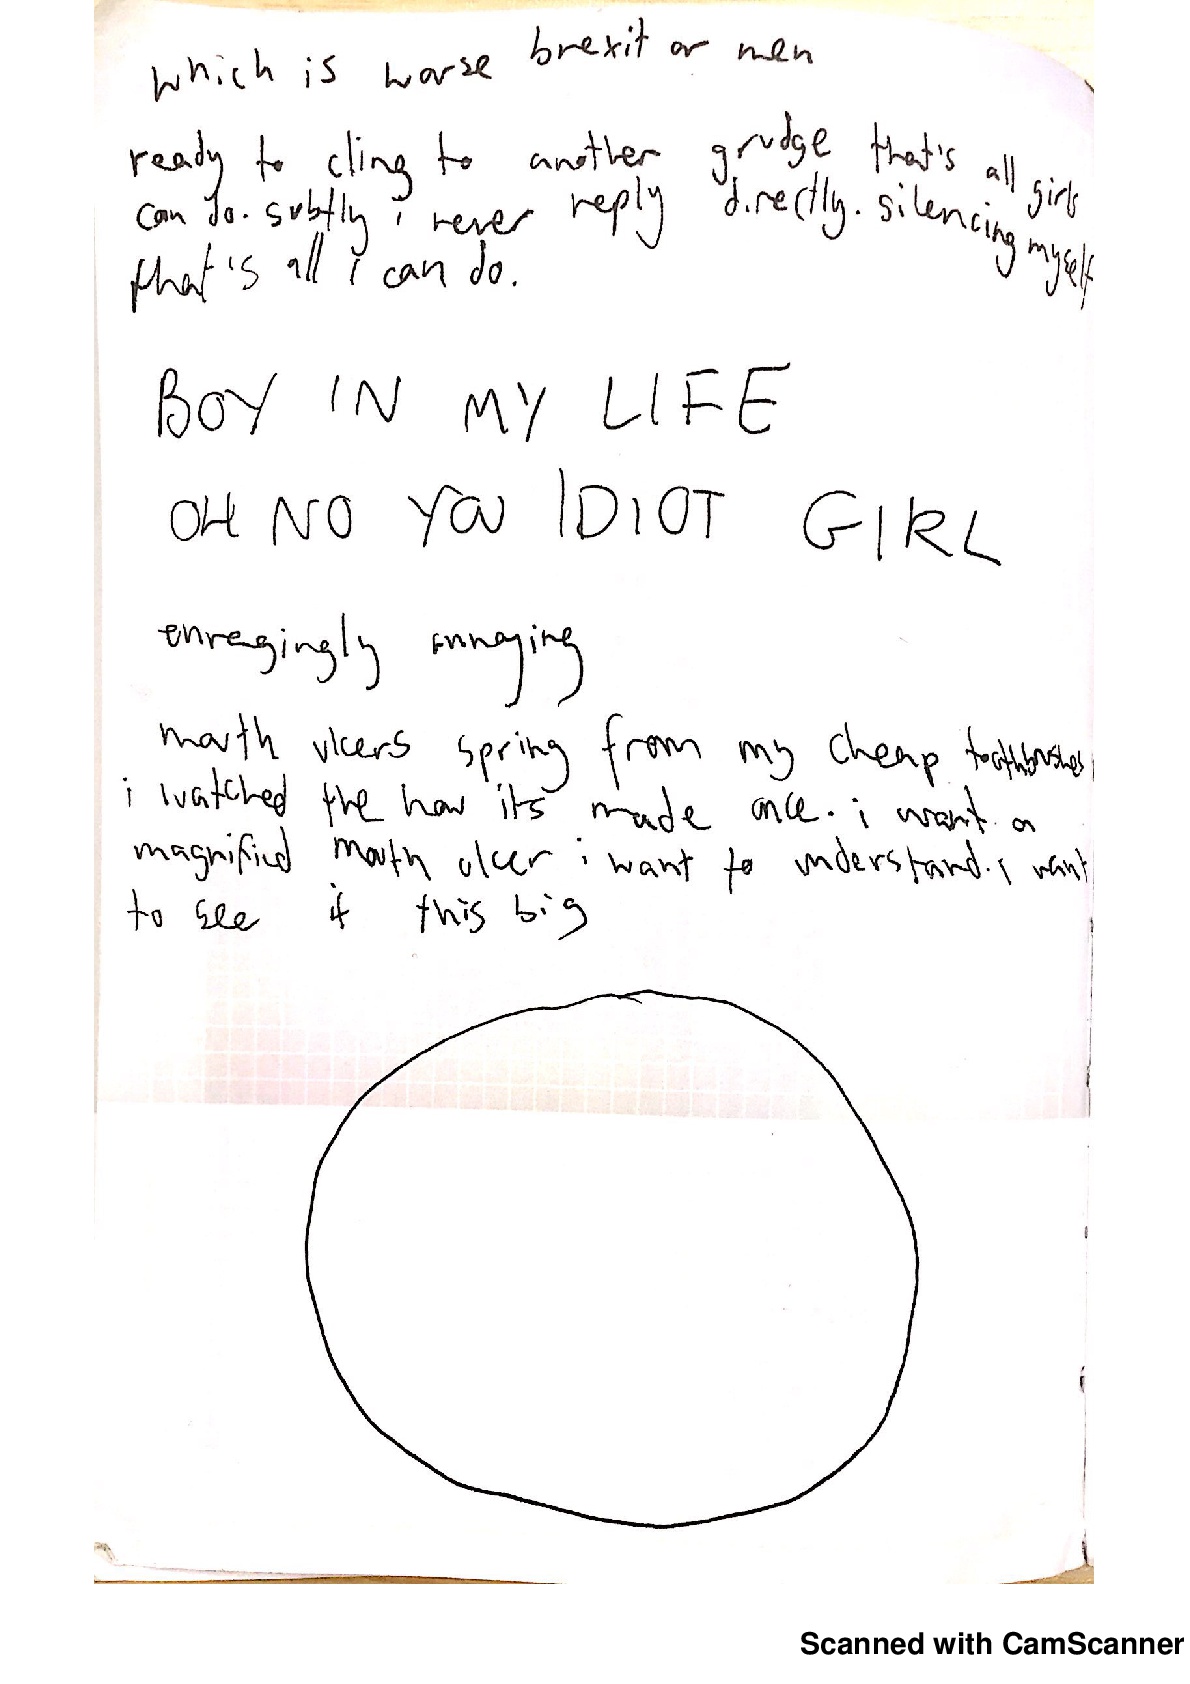 which is worse brexit or men
ready to cling to another grudge that's all girls
can do. subtly i never reply directly. silencing myself
that's all i can do.
BOY IN MY LIFE
OH NO YOU IDIOT GIRL
enragingly annoying
mouth ulcers spring from my cheap toothbrushes
i watched the how its made once. i want a
magnified mouth ulcer i want to understand. i want
to see it this big
Scanned with CamScanner